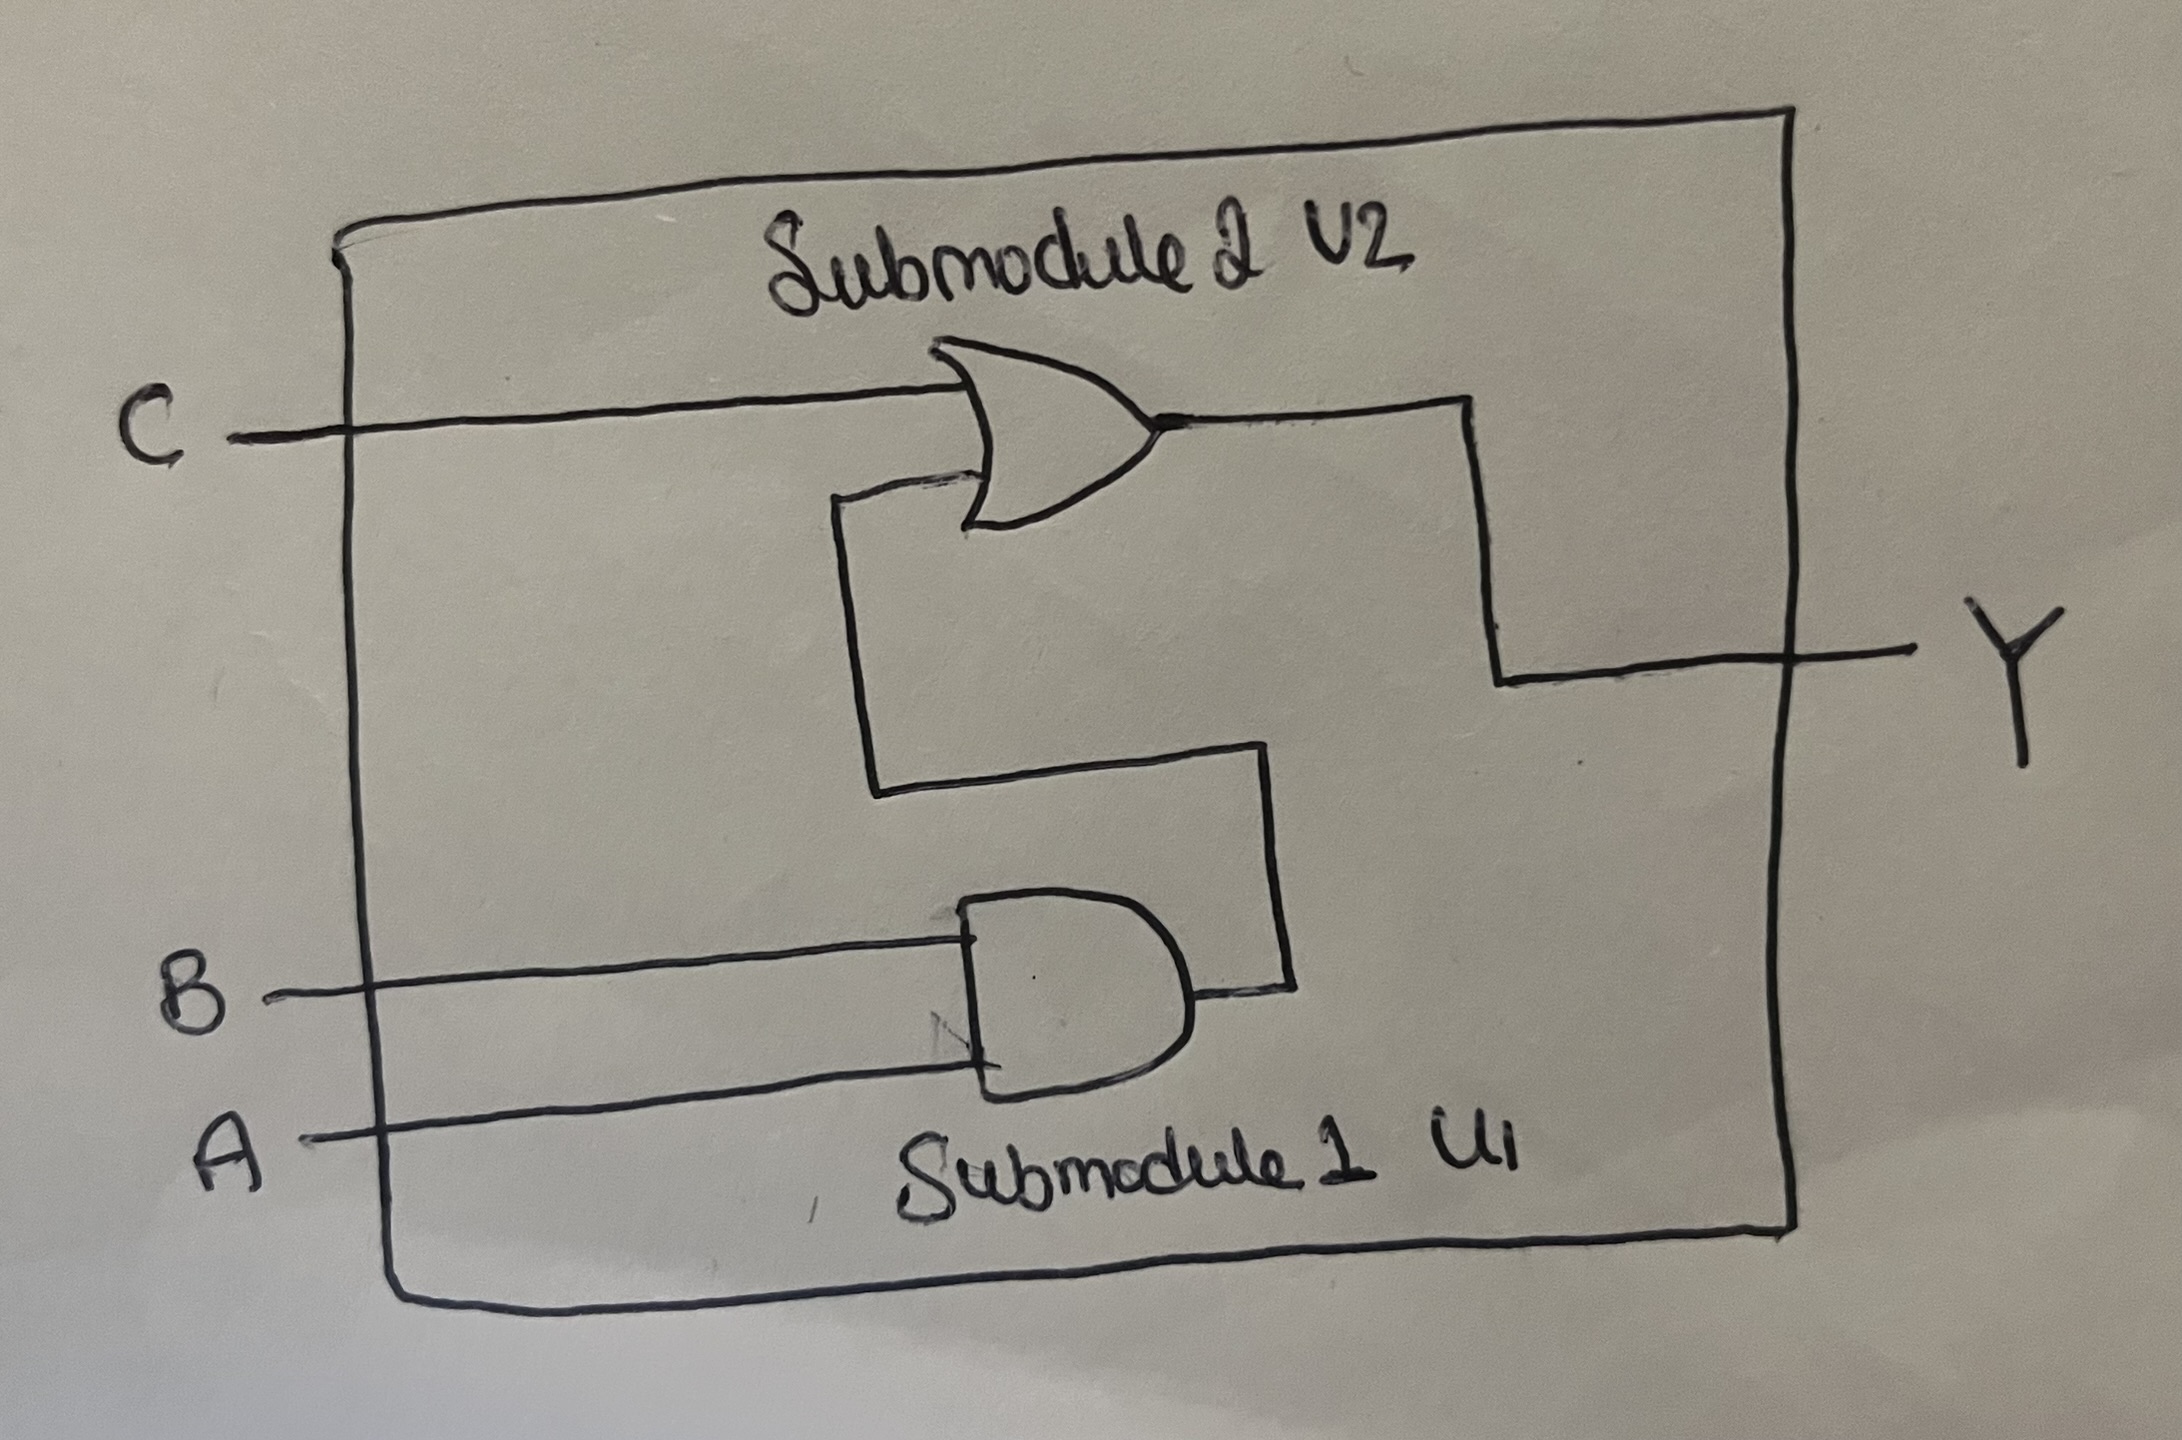 Submodule 2 U2
C
Y
B
A
Submodule 1 U1